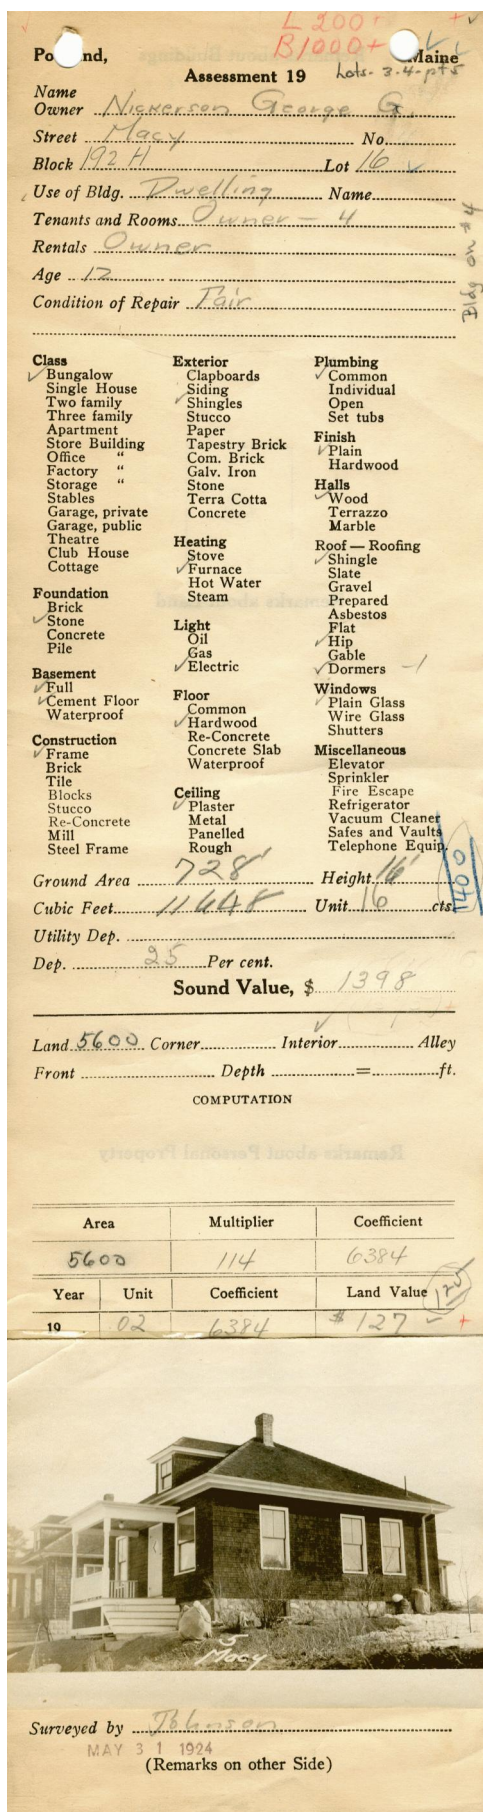 L 200+ +✓
B 1000+ ✓✓
Portland, Maine
Assessment 19 Lots- 3-4-pt5
Name
Owner Nickerson George G.
Street Macy No.
Block 192 H Lot 16 ✓
Use of Bldg. Dwelling Name
Tenants and Rooms Owner — 4
Rentals Owner
Age 12
Condition of Repair Fair
Bldg on #4
Class
✓ Bungalow
Single House
Two family
Three family
Apartment
Store Building
Office "
Factory "
Storage "
Stables
Garage, private
Garage, public
Theatre
Club House
Cottage
Foundation
Brick
✓ Stone
Concrete
Pile
Basement
✓ Full
✓ Cement Floor
Waterproof
Construction
✓ Frame
Brick
Tile
Blocks
Stucco
Re-Concrete
Mill
Steel Frame
Exterior
Clapboards
Siding
✓ Shingles
Stucco
Paper
Tapestry Brick
Com. Brick
Galv. Iron
Stone
Terra Cotta
Concrete
Heating
Stove
✓ Furnace
Hot Water
Steam
Light
Oil
Gas
✓ Electric
Floor
Common
✓ Hardwood
Re-Concrete
Concrete Slab
Waterproof
Ceiling
✓ Plaster
Metal
Panelled
Rough
Plumbing
✓ Common
Individual
Open
Set tubs
Finish
✓ Plain
Hardwood
Halls
✓ Wood
Terrazzo
Marble
Roof — Roofing
✓ Shingle
Slate
Gravel
Prepared
Asbestos
Flat
✓ Hip
Gable
✓ Dormers —1
Windows
✓ Plain Glass
Wire Glass
Shutters
Miscellaneous
Elevator
Sprinkler
Fire Escape
Refrigerator
Vacuum Cleaner
Safes and Vaults
Telephone Equip.
1400
Ground Area 728' Height 16'
Cubic Feet 11648 Unit 16 cts.
Utility Dep.
Dep. 25 Per cent.
Sound Value, $ 1398
Land 5600 Corner Interior ✓ Alley
Front Depth = ft.
COMPUTATION
Area Multiplier Coefficient
5600 114 6384
Year Unit Coefficient Land Value 125
19 02 6384 $127 ✓ +
5
Macy
Surveyed by Johnson
MAY 31 1924
(Remarks on other Side)